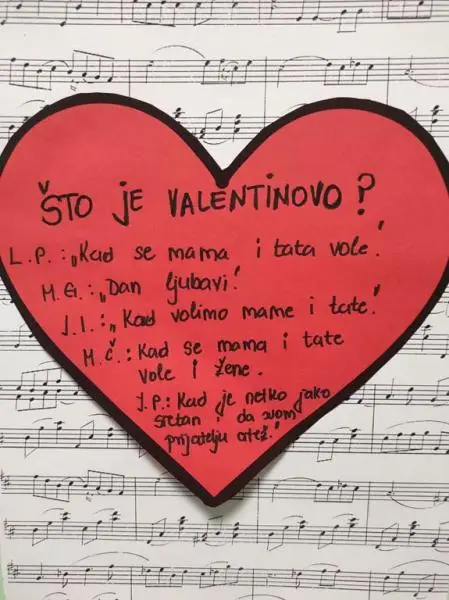 ŠTO JE VALENTINOVO?
L.P.: „Kad se mama i tata vole.“
M.G.: „Dan ljubavi.“
J.I.: „Kad volimo mame i tate.“
M.Č.: Kad se mama i tate
vole i žene.
J.P.: Kad je netko jako
sretan i da svom
prijatelju